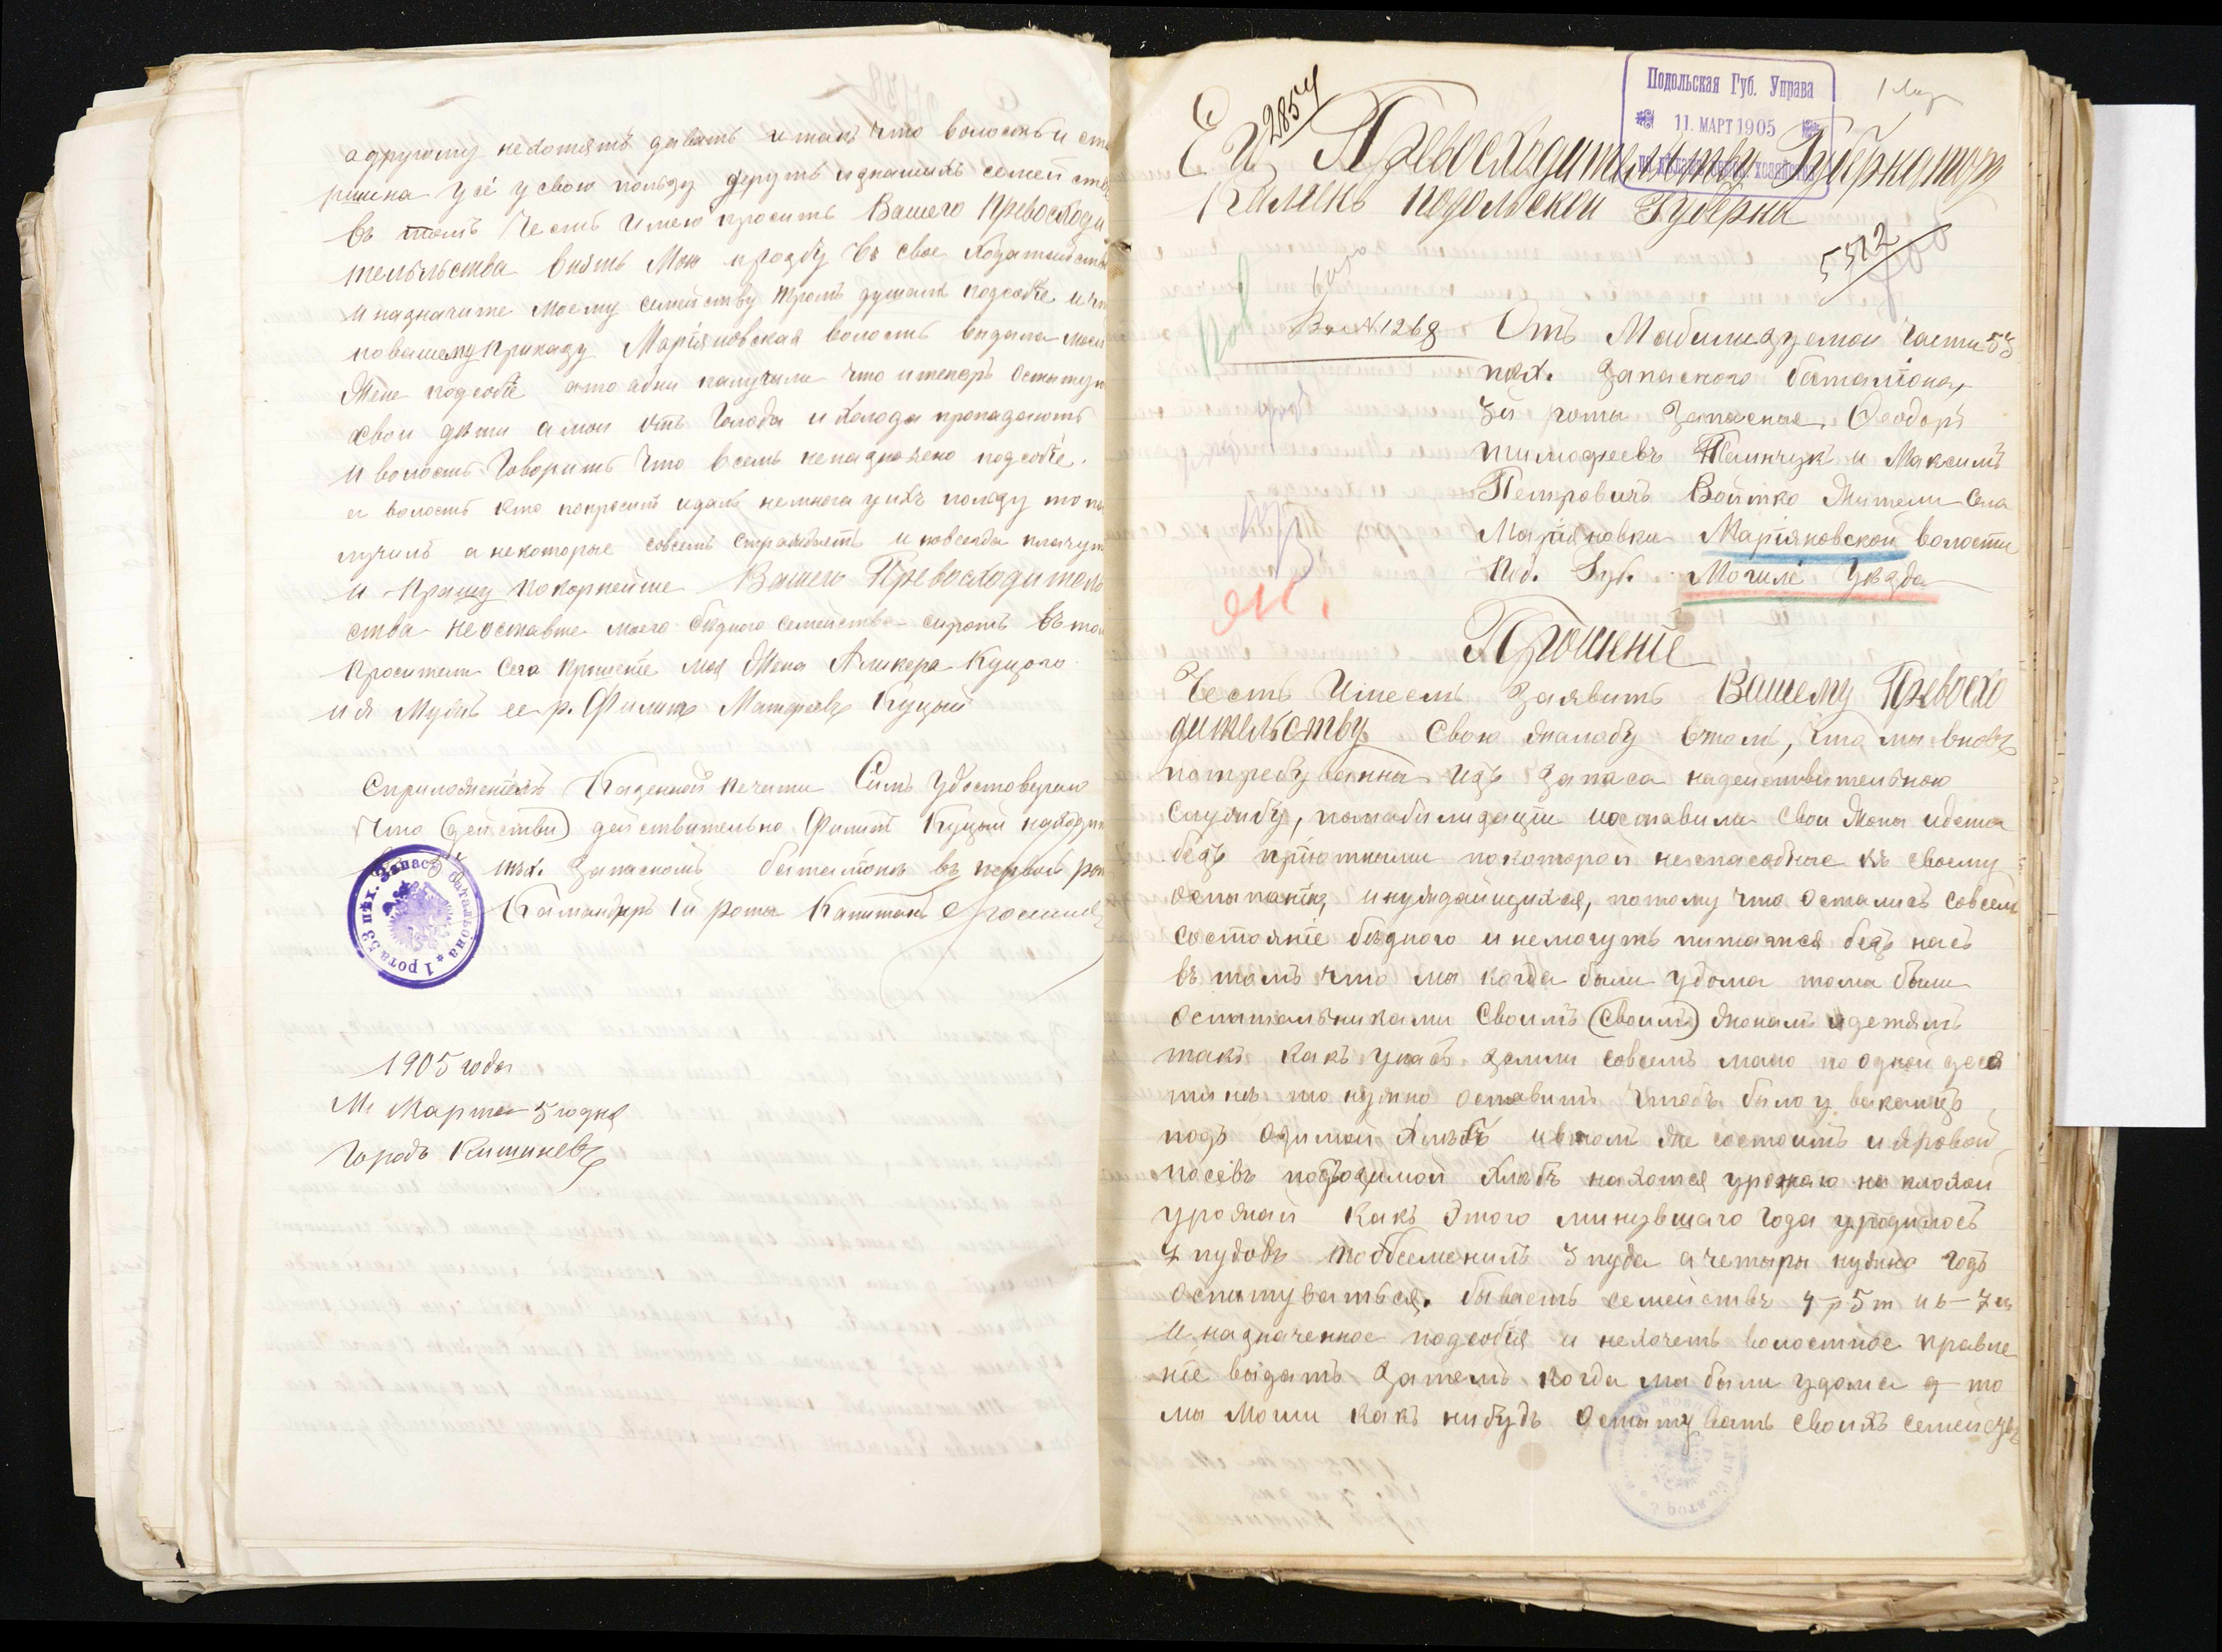 а другому нехотятъ давать и такъ что волосныи ста
ршина усё у свою пользу берутъ иднашихъ семейства
въ томъ Честь Имею просить Вашего Превосходи
тельльства внять Мою прозбу въ свое Ходатайство
и назначите моему семейству тромъ душамъ подсобіе и что
по вашему приказу Маріяновская волость выдала моей
Жене подсобіе а то адни получили что и теперъ
свои дѣти а мои отъ Голода и Холода пропадоють
и волость Говоритъ что всемъ неназначено подсобіе.
а волость кто попроситъ идасть немнога у ихъ пользу то по
лучилъ а некоторые совсемъ страждаетъ и повсегда плачут
и Прашу покорнейше Вашего Превосходитель
ства неоставте моего бѣдного семейства сиротъ въ том
просители Сего прошеніе моя Жена Гликера Куцого
и я Мужъ ее р. Филипъ Матфеевъ Куцый
Сприложеніемъ Казенной печати Симъ Удостоверяю
Что (действи) действительно Филипъ Куцый находит
пѣх. Запасномъ баталіонѣ въ первой рот
Командиръ 1й роты Капитанъ
1 рота 53 пѣх. Запасн. баталіона
1905 года
М. Марта 5 го дня
Городъ Кишиневъ
2854
Подольская Губ. Управа
11. МАРТ 1905
Его Превосходительству Губернатору
Каменъ подольской Губерни
5572
Вх. № 1268
Отъ Мабилизуемои Части 53
пѣх. Запасного баталіона,
3й роты Запасные. Феодоръ
Тимофеевъ Палинчукъ и Максимъ
Петровичъ Войтко Жители Села
Маріяновки Маріяновской волости
Под. Губ. Могиле Уезда
Прошеніе
Честь Имеемъ Заявить Вашему Превосхо
дительству Свою жалобу втом, что мы вновъ
потребуванны изъ Запаса надействительною
Службу, помабилизаціи иоставили Свои Жоны идети
безъ пріютными покоторой неспасобные къ своему
оспытанію инуждающихся, потому что остались совсем
состояніе бѣдного и немогутъ питатся безъ насъ
въ томъ что мы когда были удома тома были
оспытальниками Своимъ (своимъ) жонамъ идетямъ
такъ какъ унасъ Земли совсемъ мало по одной деся
тинѣ то нужно оставить Чтобъ было у
подъ Озимой Хлебъ ивтом же состоитъ и яровой
посѣвъ подъозимой хлѣбъ находтся урожаю на плохой
урожай какъ Этого минувшаго Года уродилось
7 пудовъ тообсеменилъ 3 пуда а четыри нужно Годъ
оспытуваться. бываетъ семействъ 4 р 5 т и ъ 7 м
И назначенное подсобія и нехочетъ волостное правле
ніе выдать Затемъ когда мы были удома то
мы могли какъ нибудь оспытувать своихъ семейству